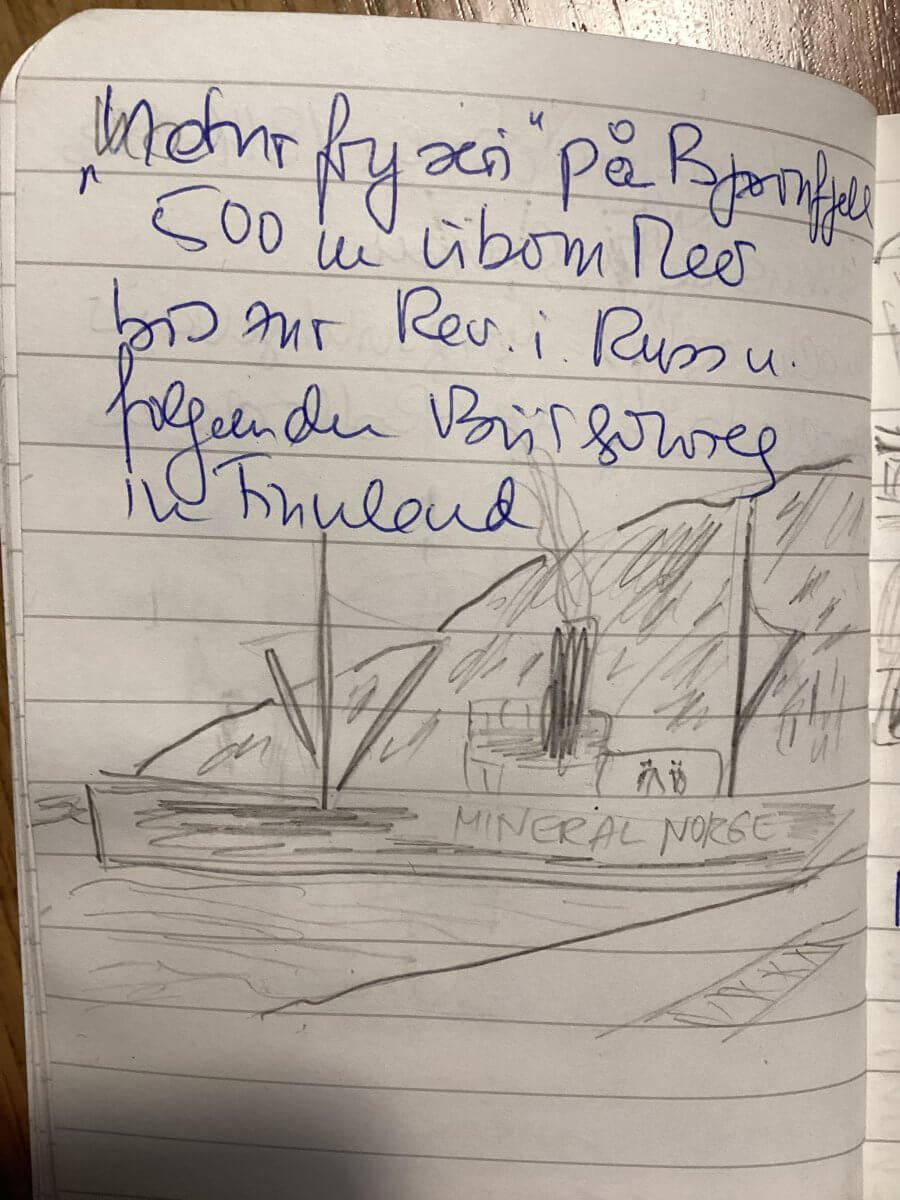 „Naturfryseri" på Bjørnfjell
500 m überm Meer
bis zur Rev. i. Russ u.
folgenden Bürgerkrieg
in Finnland
MINERAL NORGE